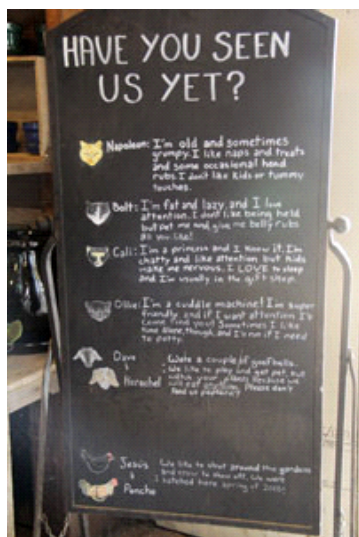 HAVE YOU SEEN
US YET?
Napoleon: I'm old and sometimes
grumpy. I like naps and treats
and some occasional head
rubs. I don't like kids or tummy
touches.
Bolt: I'm fat and lazy, and I love
attention. I don't like being held
but pet me and give me belly rubs
all you like!
Cali: I'm a princess and I know it. I'm
chatty and like attention but kids
make me nervous. I LOVE to sleep
and I'm usually in the gift shop.
Ollie: I'm a cuddle machine! I'm super
friendly and if I want attention I'll
come find you! Sometimes I like
time alone, though, and I'll run if I need
to potty.
Dave & Herschel: We're a couple of goofballs.
We like to play and get pet, but
watch your because we
will eat anything. Please don't
feed us
Jesús & Poncho: We like to strut around the gardens
and crow to show off. We were
hatched here spring of